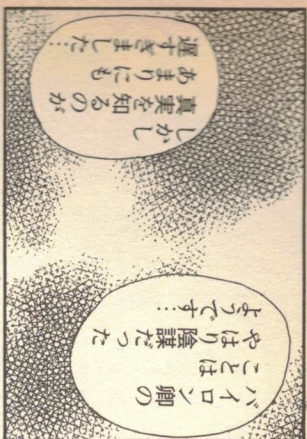 バイロン卿の
ことは
やはり陰謀だった
ようです…
しかし
真実を知るのが
あまりにも
遅すぎました…